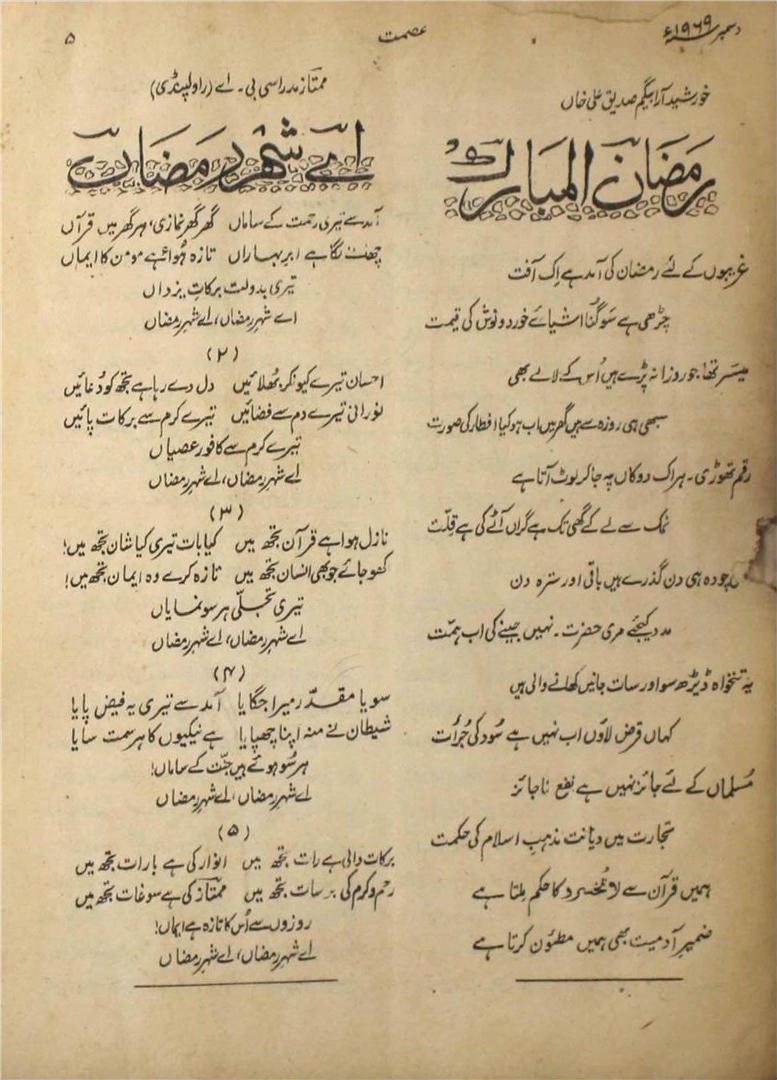 دسمبر ۱۹۶۹ء
عصمت
۵
خورشید آرا بیگم صدیق علی خاں
رمضان المبارک
غریبوں کے لئے رمضان کی آمد ہے اِک آفت
چڑھی ہے سَو گنُا اشیائے خورد و نوش کی قیمت
میسّر تھا جو روزانہ پڑے ہیں اُس کے لالے بھی
سبھی ہی روزہ سے ہیں گھر میں اب ہو کیا افطار کی صورت
رقم تھوڑی۔ ہر اک دوکاں پہ جا کر لوٹ آتا ہے
نمک سے لے کے گھی تک ہے گراں آٹے کی ہے قِلّت
چودہ ہی دن گذرے ہیں باقی اور سترہ دن
مدد کیجئے مری حضرت۔ نہیں جینے کی اب ہمّت
یہ تنخواہ ڈیڑھ سو اور سات جانیں کھانے والی ہیں
کہاں قرض لاؤں اب نہیں ہے سُود کی جُرأت
مُسلماں کے لئے جائز نہیں ہے نفع ناجائز
تجارت میں دیانت مذہبِ اسلام کی حکمت
ہمیں قرآن سے لا تُخسرو کا حکم مِلتا ہے
ضمیرِ آدمیت بھی ہمیں مطئون کرتا ہے
ممتاز مدراسی بی۔ اے (راولپنڈی)
اے شہرِ رمضاں
آمد سے تیری رحمت کے ساماں گھر گھر نمازی، ہر گھر میں قرآں
چھٹنے لگا ہے ابرِ بہاراں تازہ ہُوا ہے مومن کا ایماں
تیری بدولت برکاتِ یزداں
اے شہرِ رمضاں، اے شہرِ رمضاں
(۲)
احسان تیرے کیونکر بھُلائیں دل دے رہا ہے تجھ کو دُعائیں
نورانی تیرے دم سے فضائیں تیرے کرم سے برکات پائیں
تیرے کرم سے کافور عصیاں
اے شہرِ رمضاں، اے شہرِ رمضاں
(۳)
نازل ہوا ہے قرآن تجھ میں کیا بات تیری کیا شان تجھ میں!
کھو جائے جو بھی انسان تجھ میں تازہ کرے وہ ایمان تجھ میں!
تیری تجلّی ہر سو نمایاں
اے شہرِ رمضاں، اے شہرِ رمضاں
(۴)
سویا مقدّر میرا جگایا آمد سے تیری یہ فیض پایا
شیطان نے منہ اپنا چھپایا ہے نیکیوں کا ہر سمت سایا
ہر سُو ہوئے ہیں جنّت کے ساماں!
اے شہرِ رمضاں، اے شہرِ رمضاں
(۵)
برکات والی ہے رات تجھ میں انوار کی ہے بارات تجھ میں
رحم و کرم کی برسات تجھ میں ممتاز کی ہے سوغات تجھ میں
روزوں سے اُس کا تازہ ہے ایماں!
اے شہرِ رمضاں، اے شہرِ رمضاں